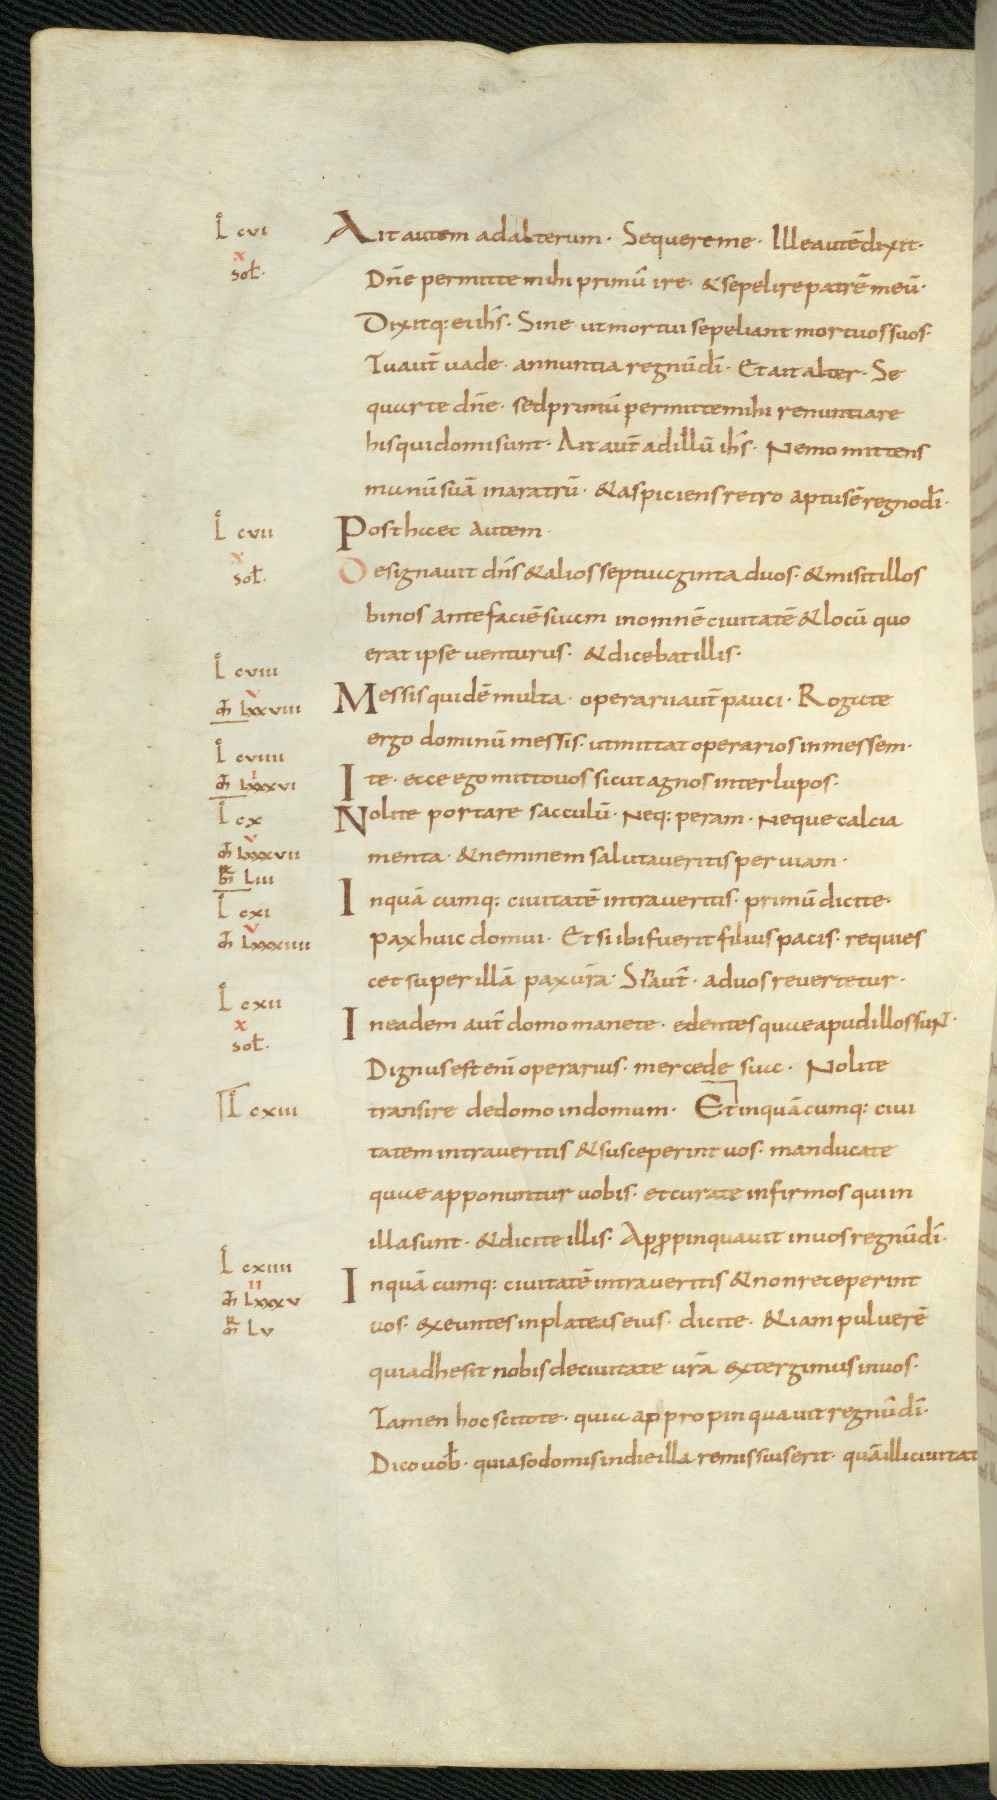 L cvi
x
sol̄·
Ait autem ad alterum · Sequere me · Ille autē dixit·
Dn̄e permitte mihi primū ire · & sepelire patrē meū·
Dixitq: ei ih̄s · Sine ut mortui sepeliant mortuos suos·
Tu aut̄ uade · annuntia regnū dī · Et ait alter · Se
quar te dn̄e · sed primū permitte mihi renuntiare
his qui domi sunt · Ait aut̄ ad illū ih̄s · Nemo mittens
manū suā in aratrū · & aspiciens retro aptus ē regno dī·
L cvii
x
sol̄·
Post haec autem·
Designauit dn̄s & alios septuaginta duos · & misit illos
binos ante faciē suam in omnē ciuitatē & locū quo
erat ipse uenturus · & dicebat illis·
L cviii
v
m̄ Lxxviii
Messis quidē multa · operarii aut̄ pauci · Rogate
ergo dominū messis · ut mittat operarios in messem·
L cviiii
m̄ Lxxxvi
Ite · ecce ego mitto uos sicut agnos inter lupos·
L cx
v
m̄ Lxxxvii
m̄r Liii
Nolite portare sacculū · Neq: peram · Neque calcia
menta · & neminem salutaueritis per uiam·
L cxi
v
m̄ Lxxxiiii
In quā cumq: ciuitatē intraueritis · primū dicite·
pax huic domui · Et si ibi fuerit filius pacis · requies
cet super illā pax ur̄a · Sin aut̄ · ad uos reuertetur·
L cxii
x
sol̄·
In eadem aut̄ domo manete · edentes quae apud illos suN̄·
Dignus est enī operarius · mercede sua · Nolite
L cxiii
transire de domo in domum · Et in quā cumq: ciui
tatem intraueritis & susceperint uos · manducate
quae apponuntur uobis · et curate infirmos qui in
illa sunt · & dicite illis · Appropinquauit in uos regnū dī·
L cxiiii
ii
m̄ Lxxxv
m̄r Lv
In quā cumq: ciuitatē intraueritis & non receperint
uos · exeuntes in plateas eius · dicite · &iam puluerē
qui adhesit nobis de ciuitate ur̄a extergimus in uos·
Tamen hoc scitote · quia appropinquauit regnū dī·
Dico uob̄ · quia sodomis in die illa remissius erit · quā illi ciuitat